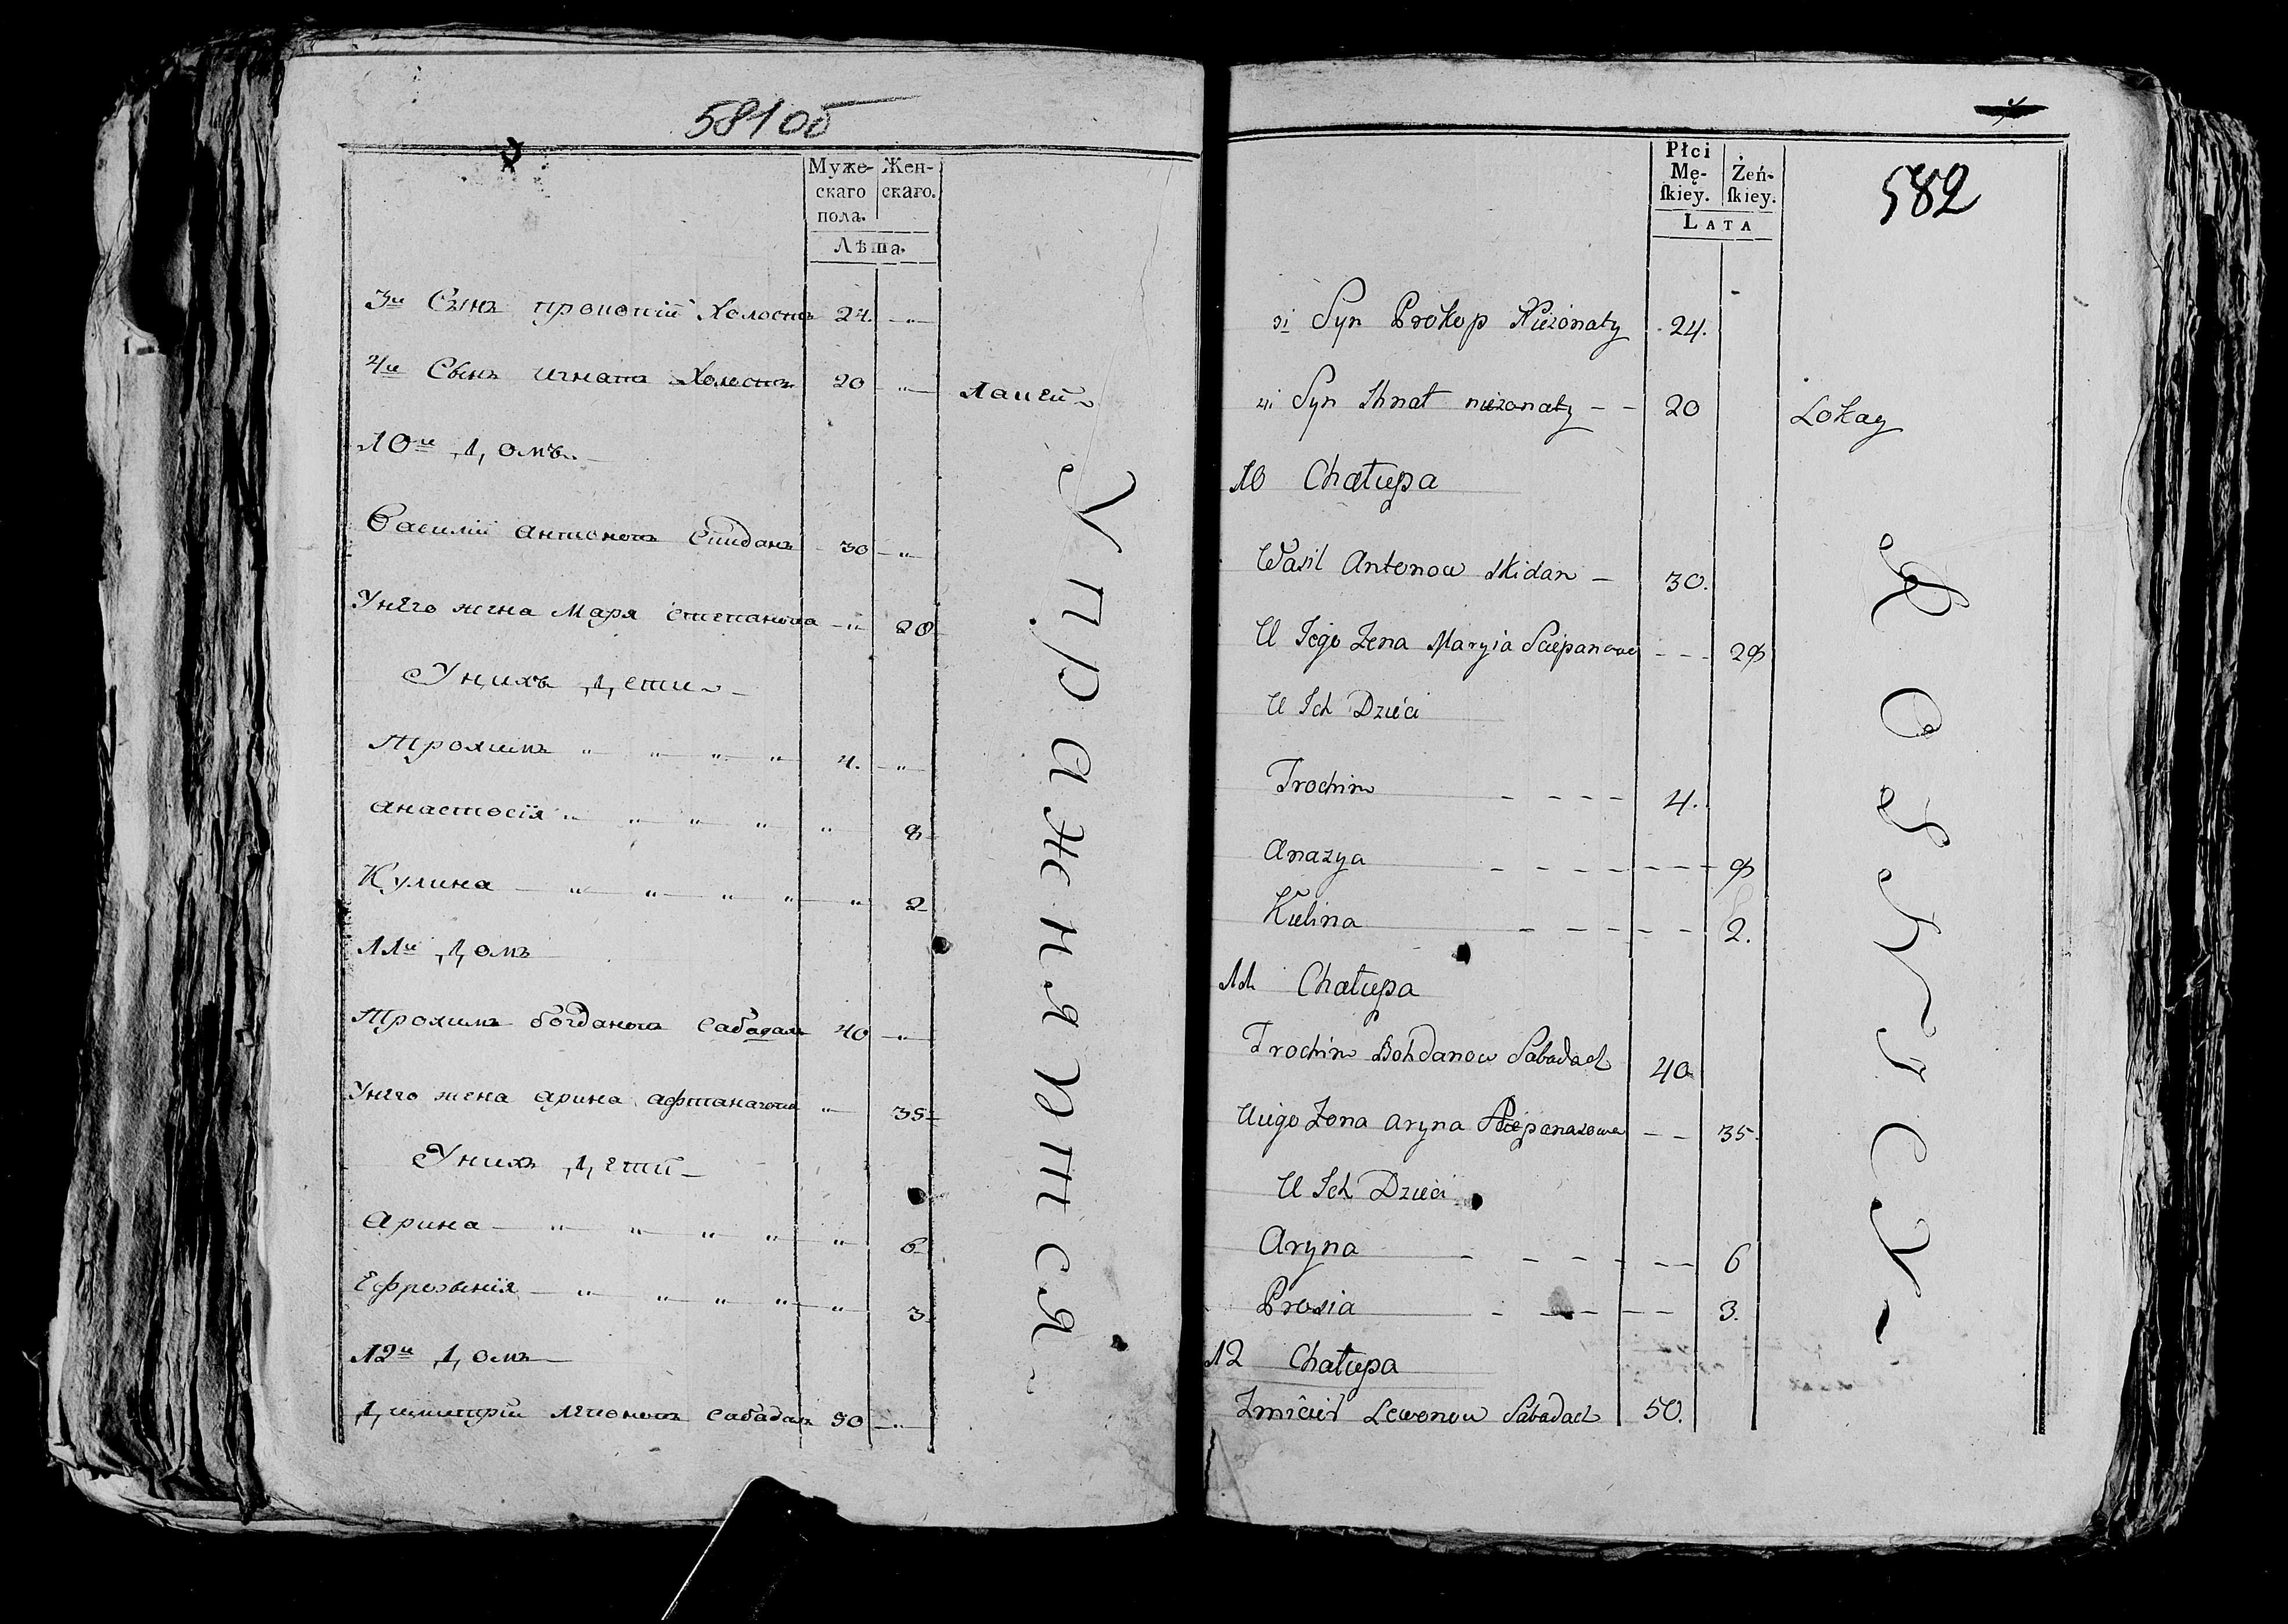 581об
Муже- Жен-
скаго скаго.
пола.
Лѣта.
3й Сынъ прокопій Холостъ 24. — " —
4й Сынъ игнатъ Холостъ 20 — " — Лакей
10й Домъ.
Василій антоновъ Скиданъ 30 — " —
Унего жена Маря степанова — " 28
Унихъ Дети
Трохимъ " " " " 4. — " —
анастосія " " " " " 8
Кулина — " " " " " 2
11й Домъ
Трохимъ богдановъ сабадахъ 40 — " —
Унего жена арина афтанасова " — 35
Унихъ Дети —
арина — " " " " " 6
Ефросинія — " " " " " 3
12й Домъ
Димитрій левоновъ сабадахъ 50 — " —
Упражняются
582
Płci
Mę- Żeń-
ſkiey. ſkiey.
LATA
3i Syn Prokop Nieżonaty 24.
4i Syn Ihnat nieżonaty - - 20 Lokay
10 Chałupa
Wasil Antonow skidan - 30.
U Jego Żena Maryia Sciepanowa - - - 28
U Ich Dzieci
Trochim - - - - 4.
Anazya - - - - - - - 8
Kulina - - - - - 2.
11 Chałupa
Trochim Bohdanow Sabadach 40
U iego Żona Aryna - - 35.
U Ich Dzieci
Aryna - - - - - - 6
Prosia - - - - - 3.
12 Chałupa
Zmicier Lewonow Sabadach 50.